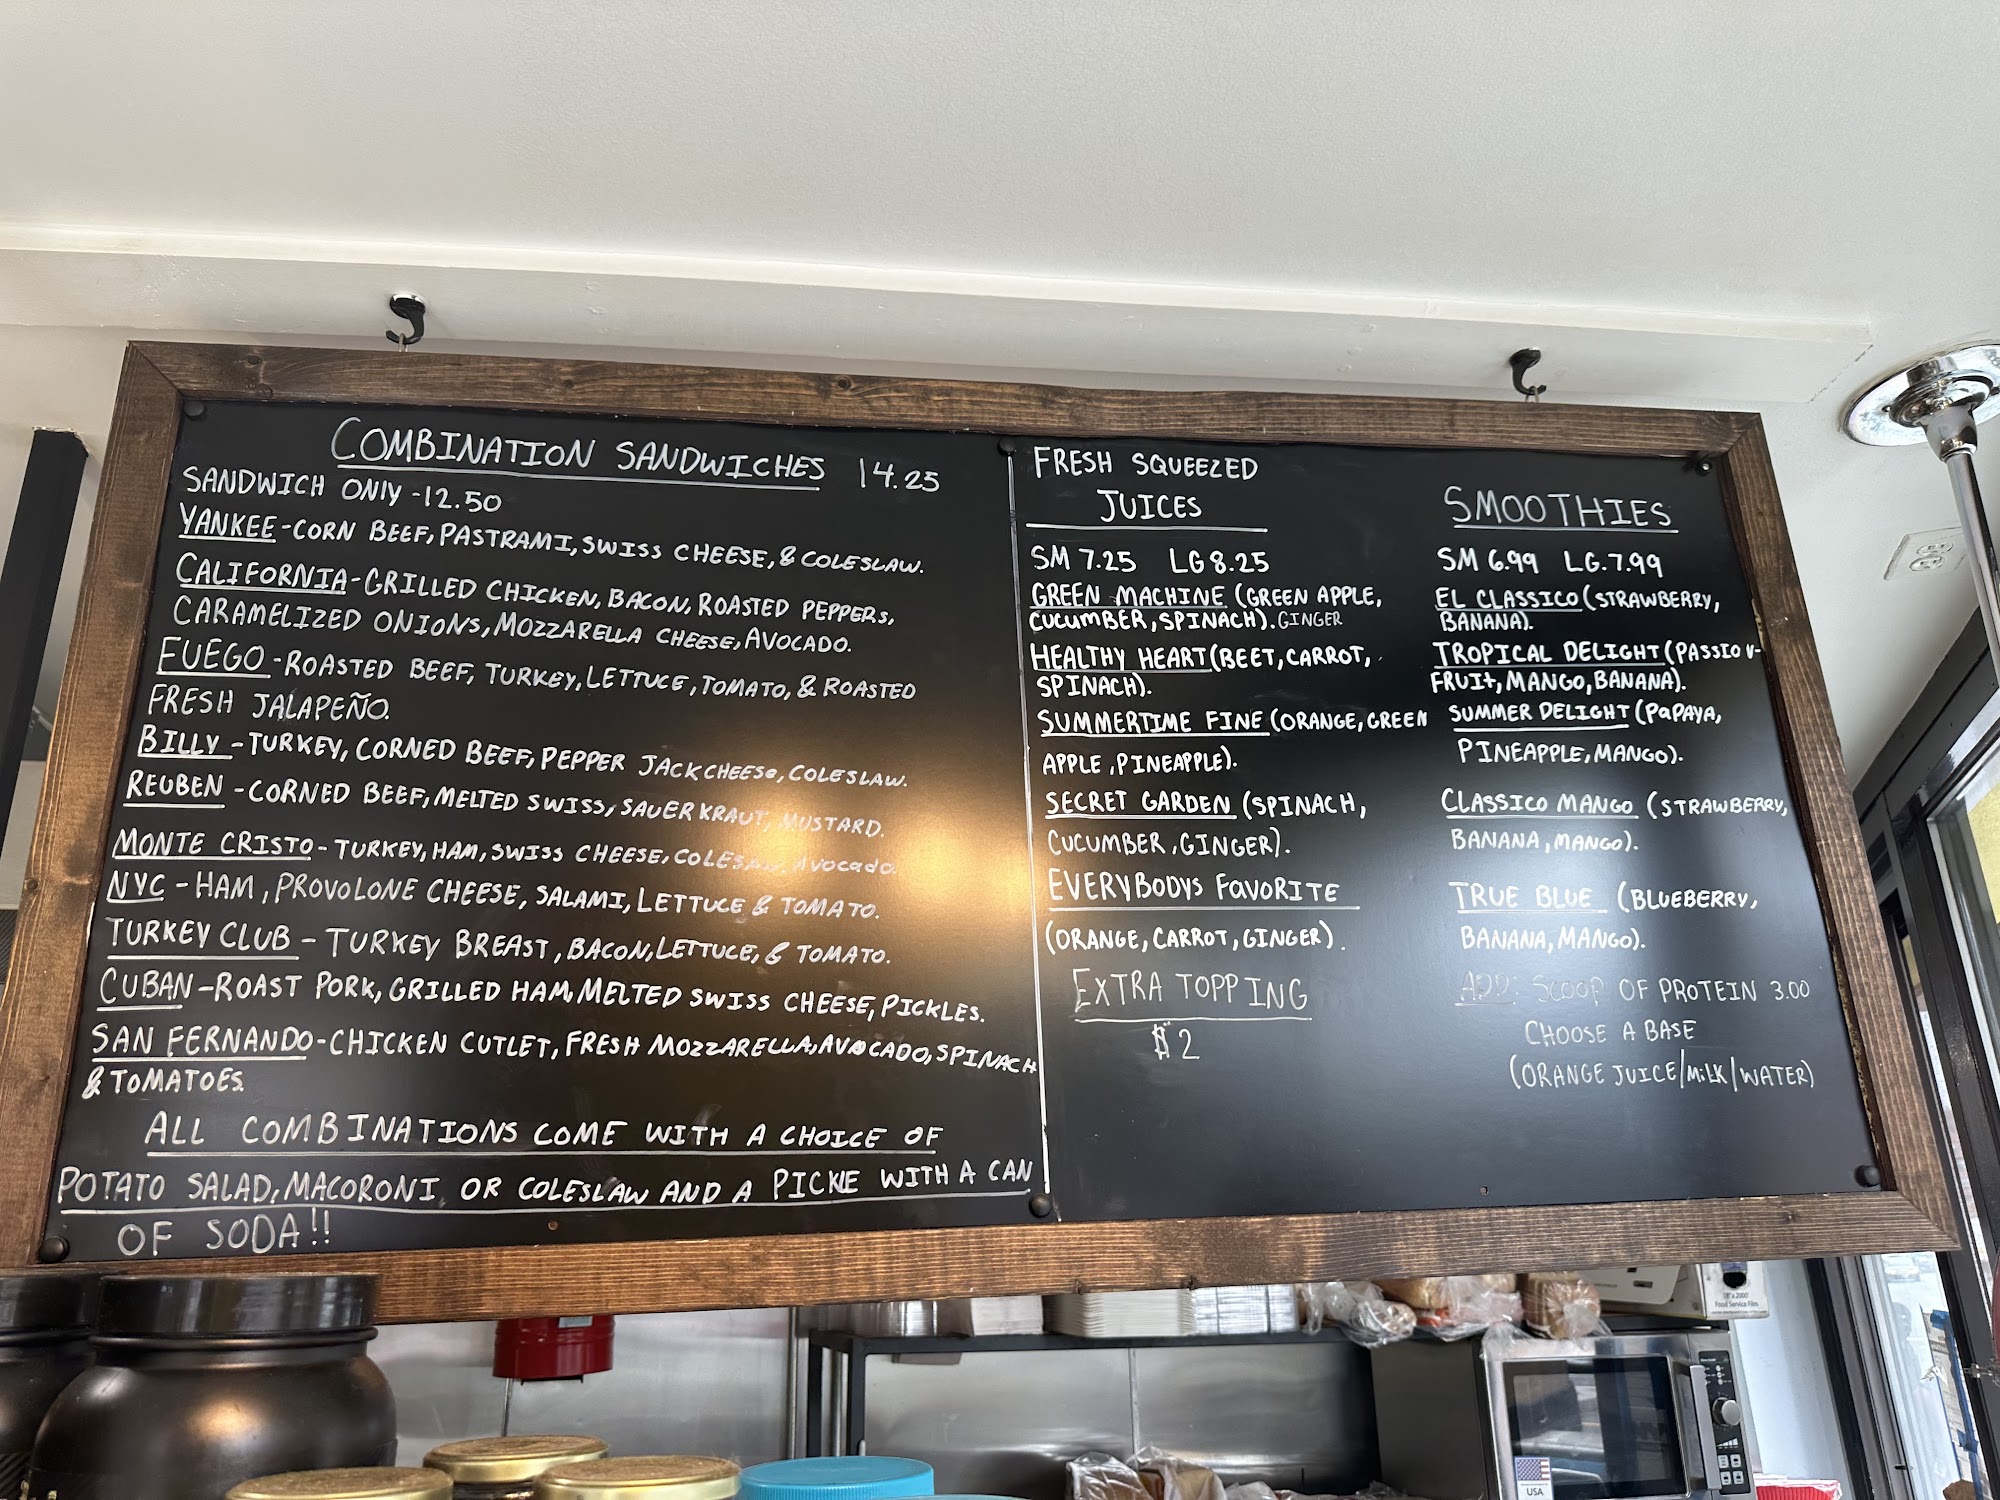 COMBINATION SANDWICHES 14.25
SANDWICH ONlY -12.50
YANKEE-CORN BEEF, PASTRAMI, SWISS CHEESE, & COLESLAW.
CALIFORNIA-GRILLED CHICKEN, BACON, ROASTED PEPPERS,
CARAMELIZED ONIONS, MOZZARELLA CHEESE, AVOCADO.
FUEGO-ROASTED BEEF, TURKEY, LETTUCE, TOMATO, & ROASTED
FRESH JALAPEÑO.
BILLY-TURKEY, CORNED BEEF, PEPPER JACK CHEESE, COLESLAW.
REUBEN-CORNED BEEF, MELTED SWISS, SAUERKRAUT, MUSTARD.
MONTE CRISTO-TURKEY, HAM, SWISS CHEESE, COLESLAW, Avocado.
NYC-HAM, PROVOLONE CHEESE, SALAMI, LETTUCE & TOMATO.
TURKEY CLUB-TURKEY BREAST, BACON, LETTUCE, & TOMATO.
CUBAN-ROAST PORK, GRILLED HAM, MELTED SWISS CHEESE, PICKLES.
SAN FERNANDO-CHICKEN CUTLET, FRESH MOZZARELLA, AVOCADO, SPINACH
& TOMATOES.
ALL COMBINATIONS COME WITH A CHOICE OF
POTATO SALAD, MACORONI OR COLESLAW AND A PICKLE WITH A CAN
OF SODA!!
FRESH SQUEEZED
JUICES
SM 7.25 LG 8.25
GREEN MACHINE (GREEN APPLE,
CUCUMBER, SPINACH). GINGER
HEALTHY HEART (BEET, CARROT,
SPINACH).
SUMMERTIME FINE (ORANGE, GREEN
APPLE, PINEAPPLE).
SECRET GARDEN (SPINACH,
CUCUMBER, GINGER).
EVERYBODYS FAVORITE
(ORANGE, CARROT, GINGER).
EXTRA TOPPING
$2
SMOOTHIES
SM 6.99 LG. 7.99
EL CLASSICO (STRAWBERRY,
BANANA).
TROPICAL DELIGHT (PASSION-
FRUIT, MANGO, BANANA).
SUMMER DELIGHT (PAPAYA,
PINEAPPLE, MANGO).
CLASSICO MANGO (STRAWBERRY,
BANANA, MANGO).
TRUE BLUE (BLUEBERRY,
BANANA, MANGO).
ADD: SCOOP OF PROTEIN 3.00
CHOOSE A BASE
(ORANGE JUICE/MILK/WATER)
18" x 2000'
Food Service Film
USA